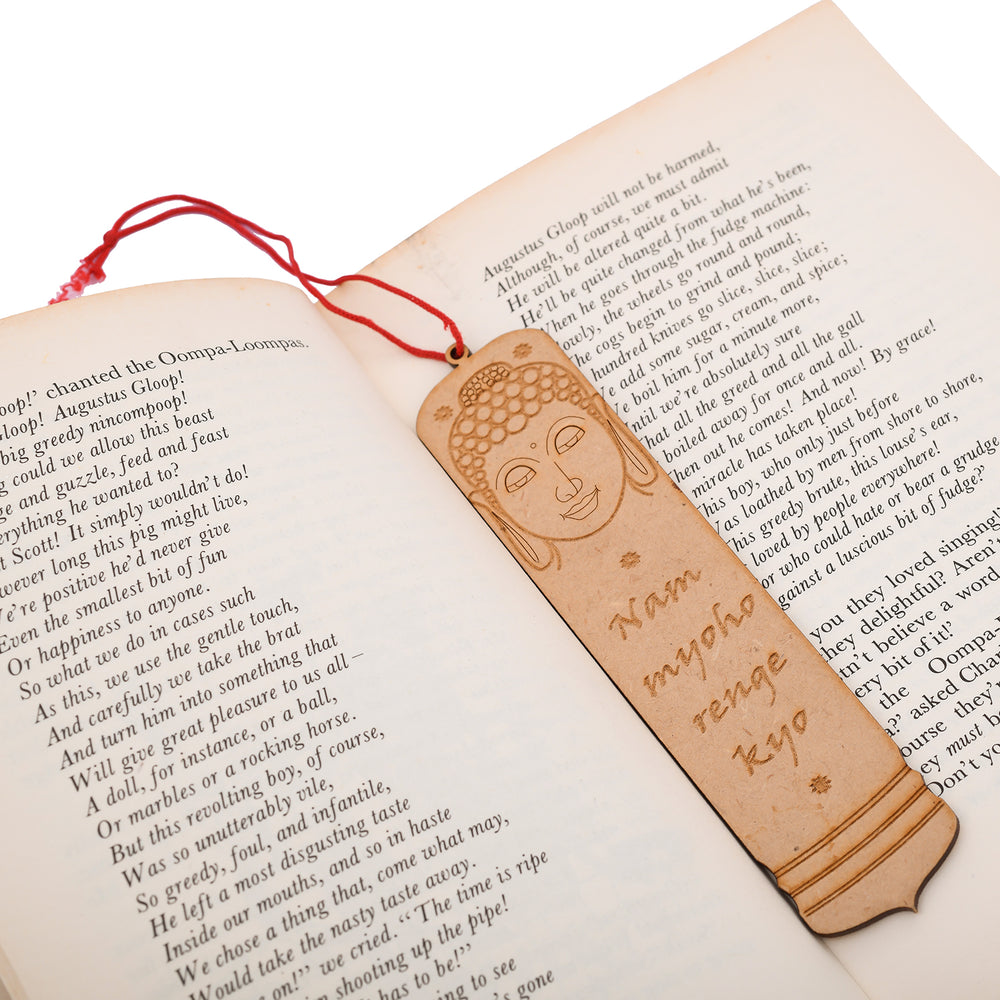 chanted the Oompa-Loompas.
Augustus Gloop!
big greedy nincompoop!
could we allow this beast
and guzzle, feed and feast
he wanted to?
Scott! It simply wouldn't do!
long this pig might live,
positive he'd never give
Even the smallest bit of fun
Or happiness to anyone.
So what we do in cases such
As this, we use the gentle touch,
And carefully we take the brat
And turn him into something that
Will give great pleasure to us all –
A doll, for instance, or a ball,
Or marbles or a rocking horse.
But this revolting boy, of course,
Was so unutterably vile,
So greedy, foul, and infantile,
He left a most disgusting taste
Inside our mouths, and so in haste
We chose a thing that, come what may,
Would take the nasty taste away.
on!" we cried. "The time is ripe
shooting up the pipe!
has to be!"
going to see
gone
Augustus Gloop will not be harmed,
Although, of course, we must admit
He will be altered quite a bit.
He'll be quite changed from what he's been,
When he goes through the fudge machine:
the wheels go round and round,
cogs begin to grind and pound;
hundred knives go slice, slice, slice;
add some sugar, cream, and spice;
boil him for a minute more,
we're absolutely sure
all the greed and all the gall
boiled away for once and all.
out he comes! And now! By grace!
miracle has taken place!
boy, who only just before
loathed by men from shore to shore,
This greedy brute, this louse's ear,
loved by people everywhere!
who could hate or bear a grudge
against a luscious bit of fudge?'
you they loved singing
they delightful? Aren't
believe a word
bit of it!'
the Oompa-
asked
they're
must
Don't
Nam
myoho
renge
kyo